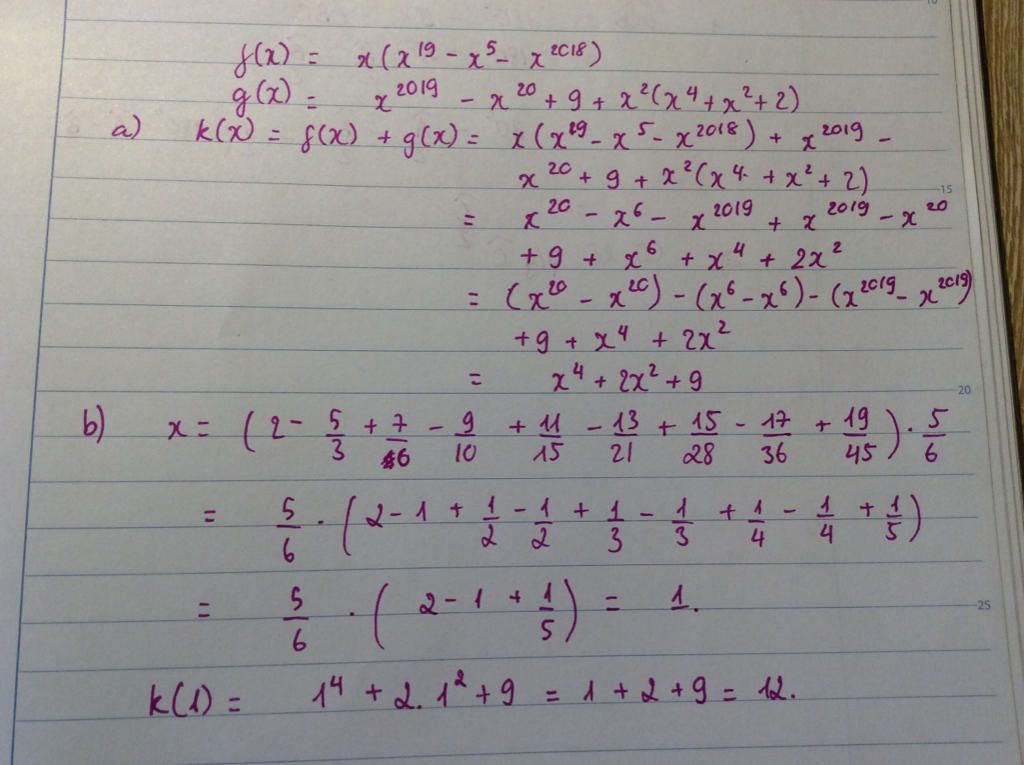 f(x) = x(x^19 - x^5 - x^2018)
g(x) = x^2019 - x^20 + 9 + x^2(x^4 + x^2 + 2)
a) k(x) = f(x) + g(x) = x(x^29 - x^5 - x^2018) + x^2019 -
x^20 + 9 + x^2(x^4 + x^2 + 2)
= x^20 - x^6 - x^2019 + x^2019 - x^20
+ 9 + x^6 + x^4 + 2x^2
= (x^20 - x^20) - (x^6 - x^6) - (x^2019 - x^2019)
+9 + x^4 + 2x^2
= x^4 + 2x^2 + 9
20
b) x = (2 - 5/3 + 7/6 - 9/10 + 11/15 - 13/21 + 15/28 - 17/36 + 19/45) . 5/6
= 5/6 . (2 - 1 + 1/2 - 1/2 + 1/3 - 1/3 + 1/4 - 1/4 + 1/5)
= 5/6 . (2 - 1 + 1/5) = 1.
25
k(1) = 1^4 + 2. 1^2 + 9 = 1 + 2 + 9 = 12.
15